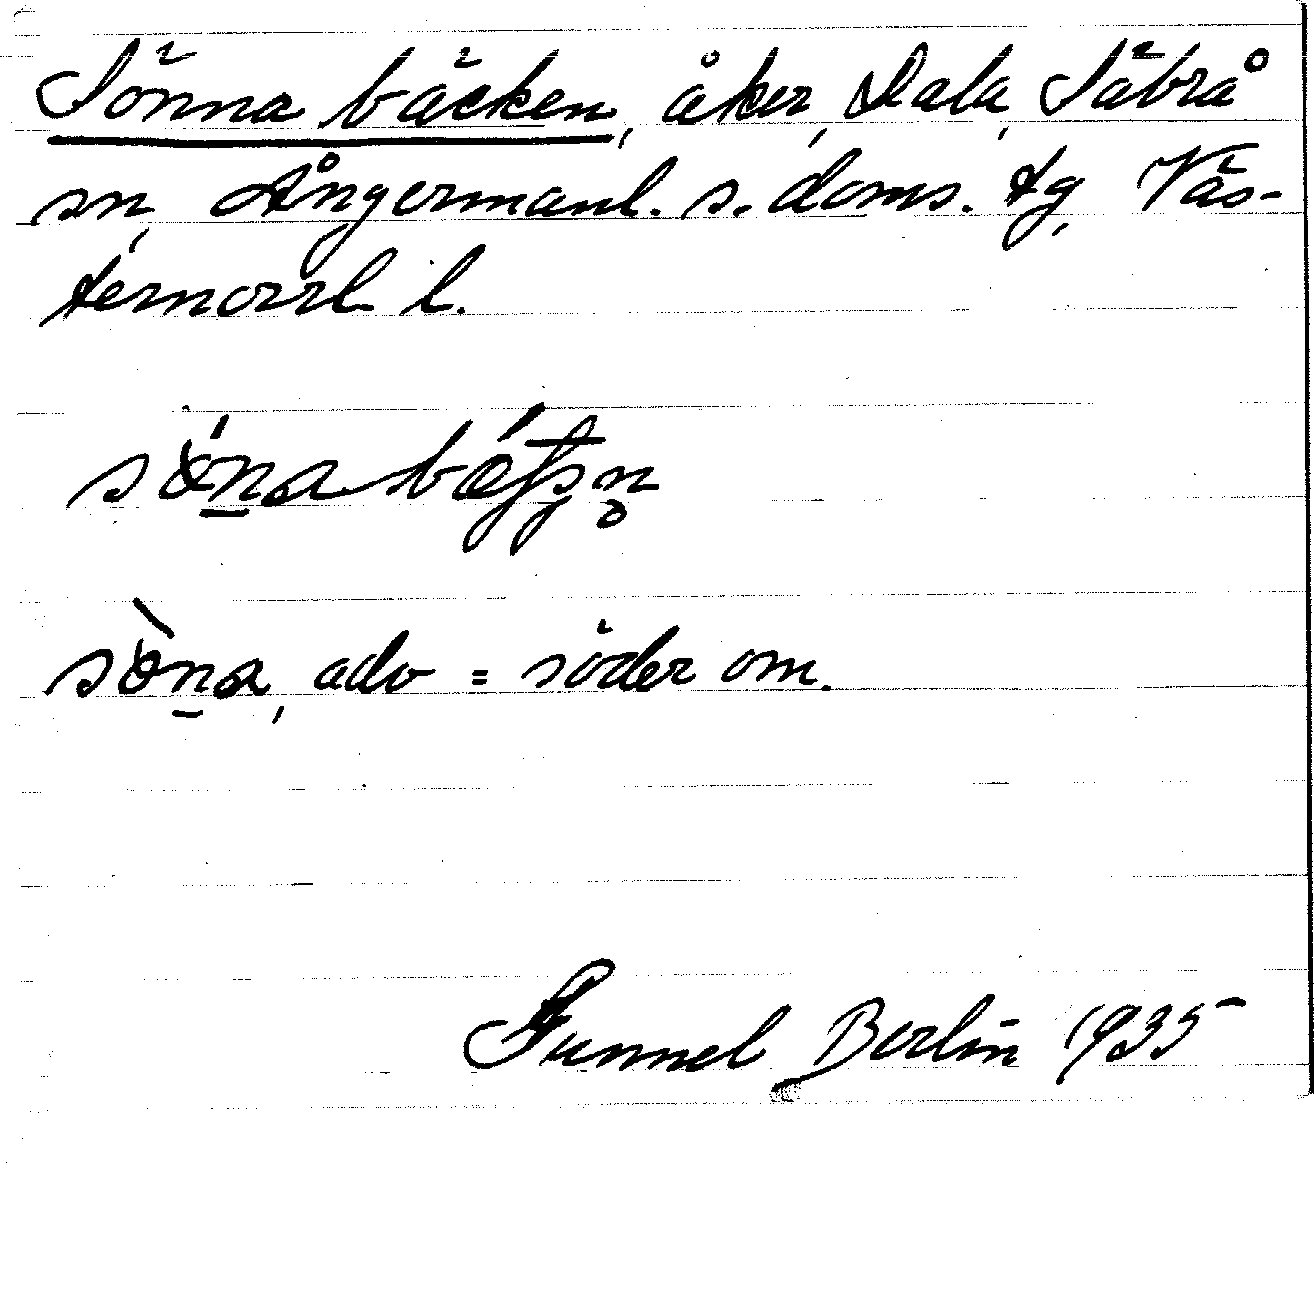 Sönna bäcken, åker, Dala, Säbrå
sn, Ångermanl. s. doms. tg, Väs-
ternorrl l.
sö́na bǽtʃn̥
sö̀na, adv = söder om.
Gunnel Berlin 1935